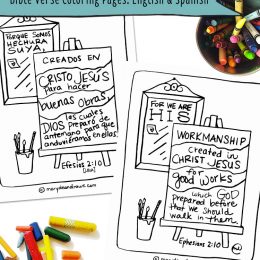 Bible Verse Coloring Pages: English & Spanish
PORQUE SOMOS
HECHURA
SUYA,
CREADOS EN
CRISTO JESÚS
para hacer
buenas obras,
las cuales
DIOS preparó de
antemano para que
anduviéramos en ellas.
Efesios 2:10
FOR WE ARE
HIS
WORKMANSHIP
created in
CHRIST JESUS
for
good works
which GOD
prepared before
that we should
walk in them.
Ephesians 2:10